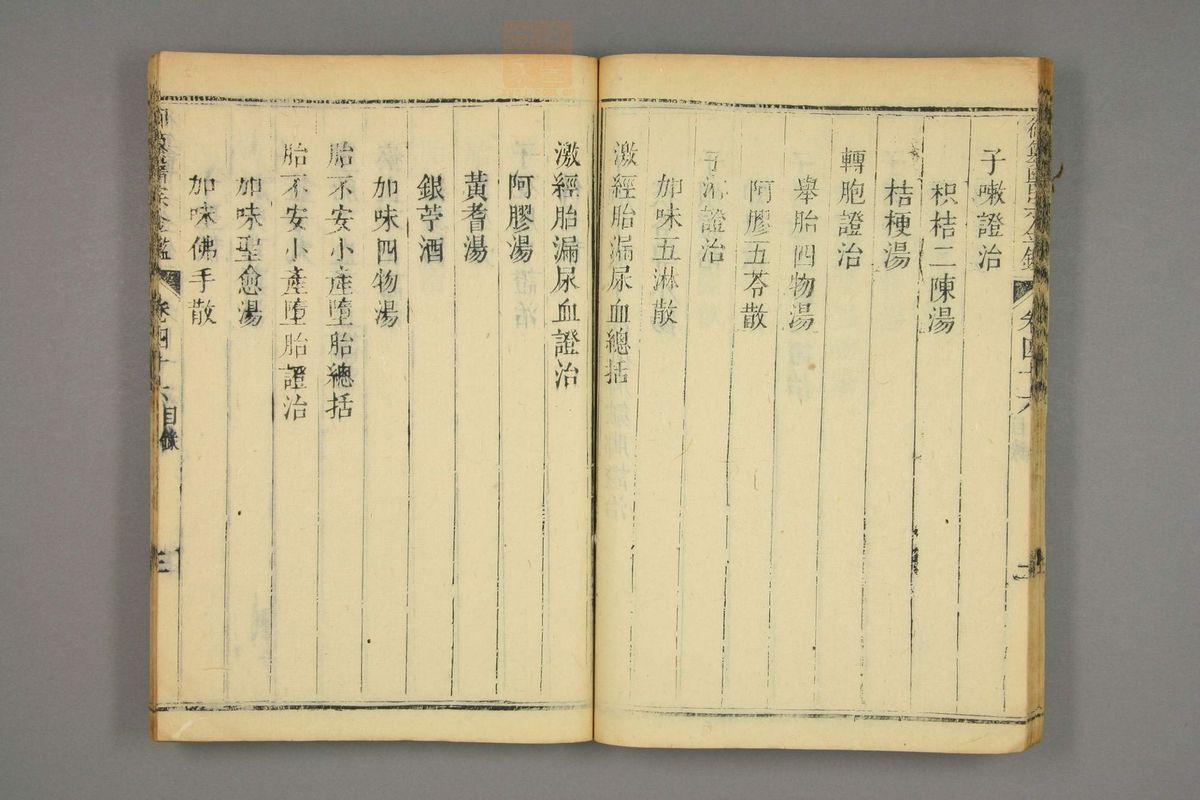 子嗽證治
枳桔二陳湯
桔梗湯
轉胞證治
舉胎四物湯
阿膠五苓散
子淋證治
加味五淋散
激經胎漏尿血總括
激經胎漏尿血證治
阿膠湯
黃耆湯
銀苧酒
加味四物湯
胎不安小產墮胎總括
胎不安小產墮胎證治
加味聖愈湯
加味佛手散
卷四十六 目錄
三